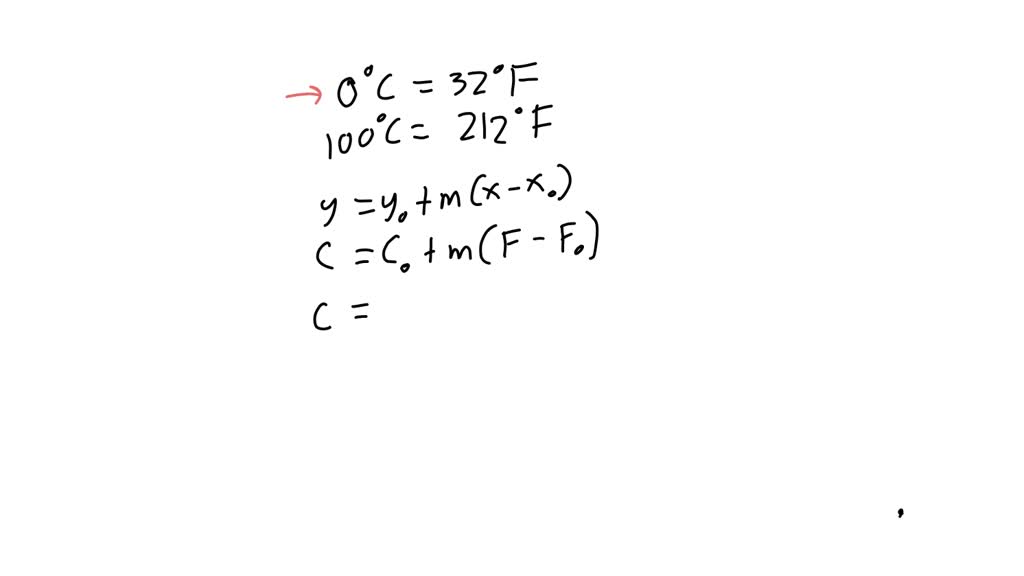 → 0°C = 32°F
100°C = 212°F
y = y₀ + m(x - x₀)
C = C₀ + m(F - F₀)
C =